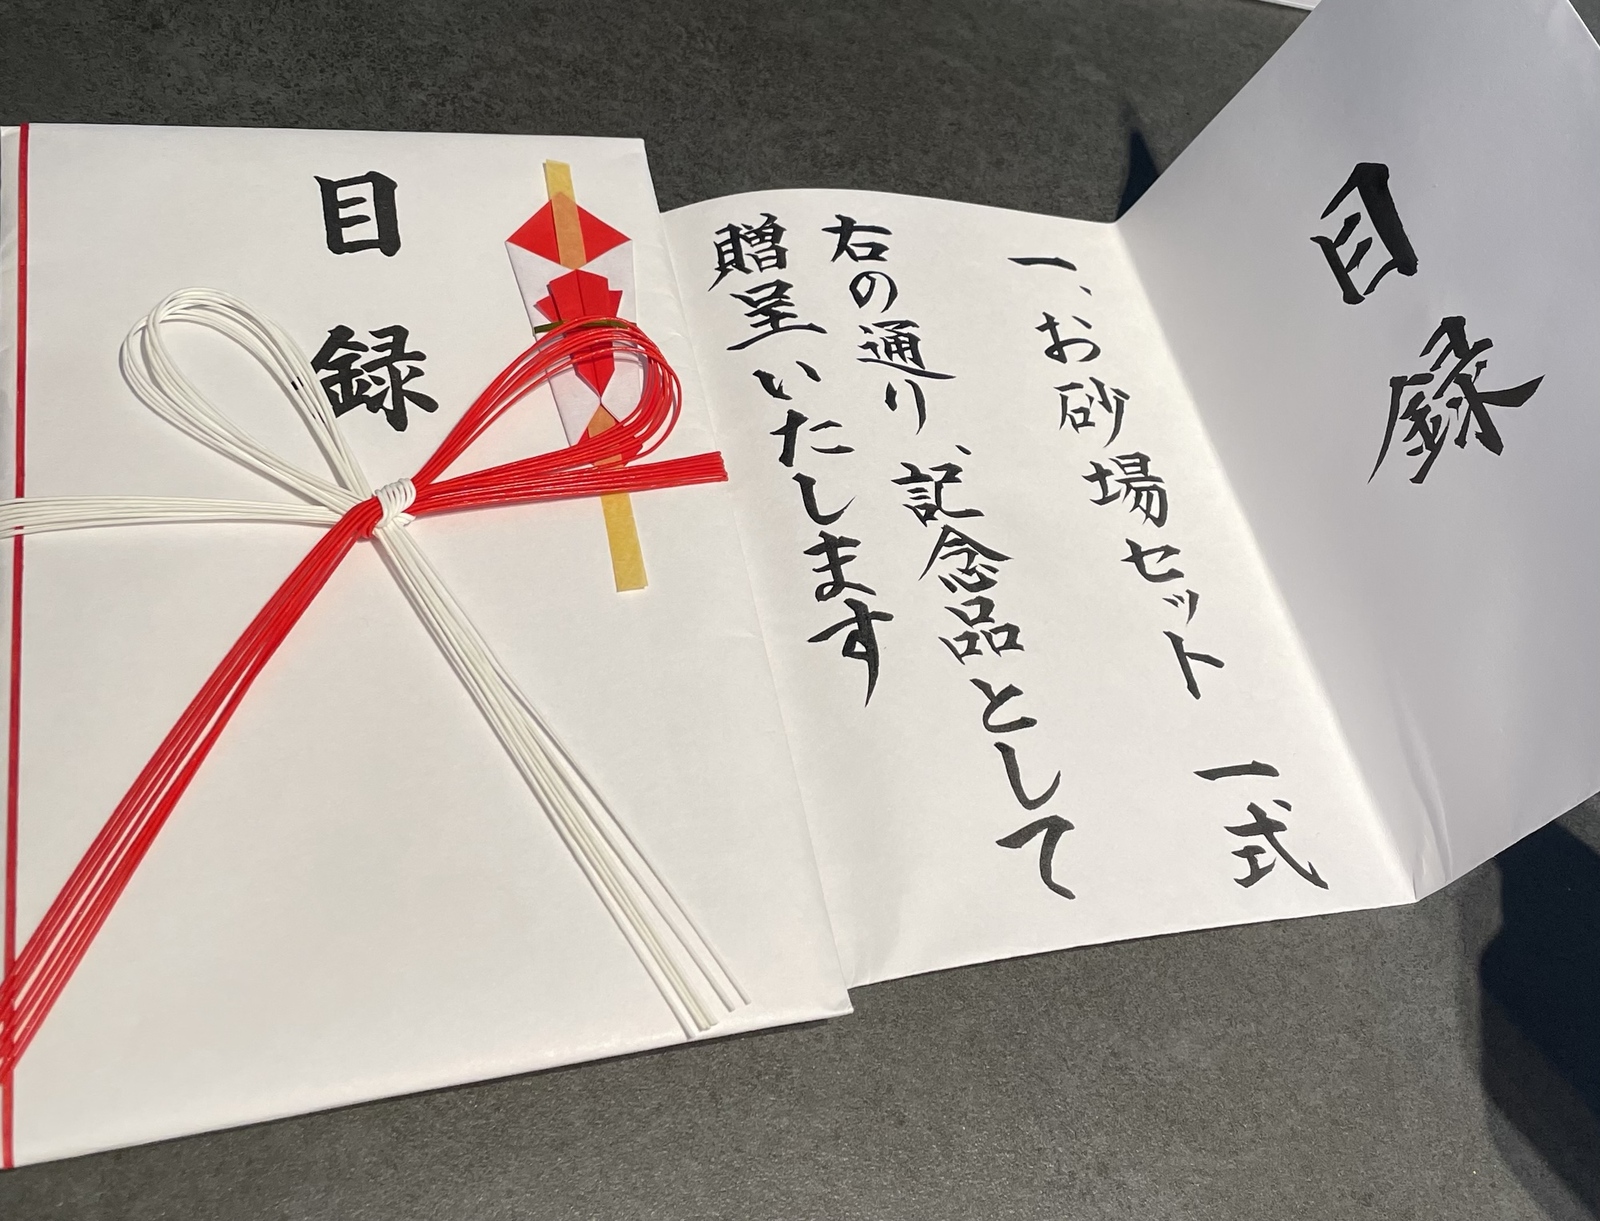 目録
目録
一、お砂場セット 一式
右の通り、記念品として
贈呈いたします